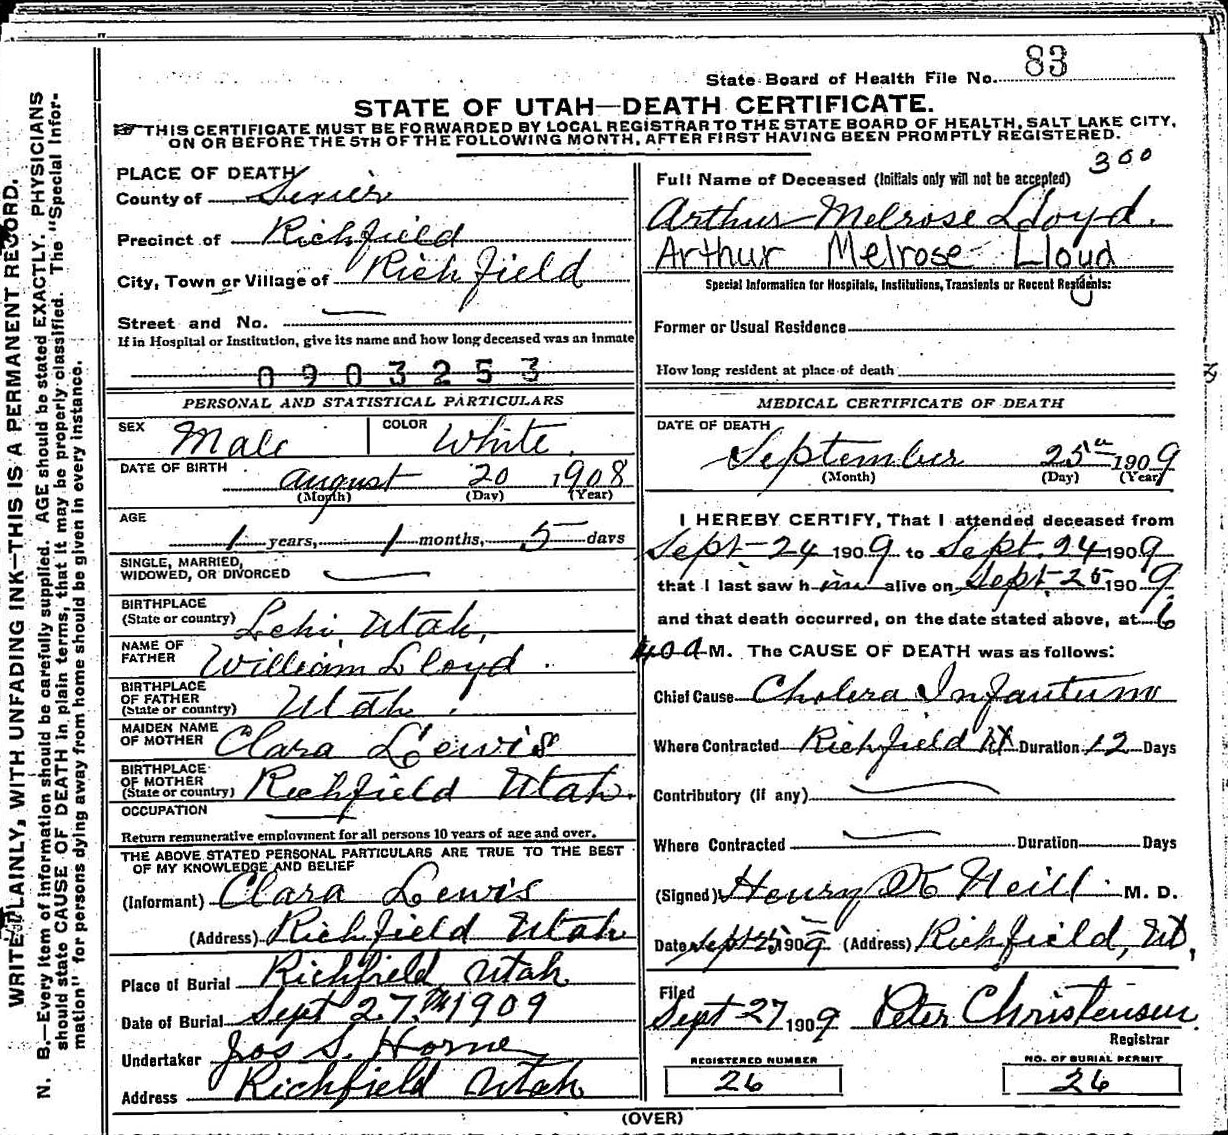 State Board of Health File No. 83
STATE OF UTAH—DEATH CERTIFICATE.
THIS CERTIFICATE MUST BE FORWARDED BY LOCAL REGISTRAR TO THE STATE BOARD OF HEALTH, SALT LAKE CITY,
ON OR BEFORE THE 5TH OF THE FOLLOWING MONTH, AFTER FIRST HAVING BEEN PROMPTLY REGISTERED.
WRITE PLAINLY, WITH UNFADING INK—THIS IS A PERMANENT RECORD.
N. B.—Every item of information should be carefully supplied. AGE should be stated EXACTLY. PHYSICIANS
should state CAUSE OF DEATH in plain terms, that it may be properly classified. The "Special Infor-
mation" for persons dying away from home should be given in every instance.
PLACE OF DEATH
County of Sevier
Precinct of Richfield
City, Town or Village of Richfield
Street and No. —
If in Hospital or Institution, give its name and how long deceased was an inmate
0903253
PERSONAL AND STATISTICAL PARTICULARS
SEX Male COLOR White
DATE OF BIRTH
August 20 1908
(Month) (Day) (Year)
AGE
1 years, 1 months, 5 days
SINGLE, MARRIED,
WIDOWED, OR DIVORCED —
BIRTHPLACE
(State or country) Lehi, Utah,
NAME OF
FATHER William Lloyd
BIRTHPLACE
OF FATHER
(State or country) Utah.
MAIDEN NAME
OF MOTHER Clara Lewis
BIRTHPLACE
OF MOTHER
(State or country) Richfield Utah.
OCCUPATION —
Return remunerative employment for all persons 10 years of age and over.
THE ABOVE STATED PERSONAL PARTICULARS ARE TRUE TO THE BEST
OF MY KNOWLEDGE AND BELIEF
(Informant) Clara Lewis
(Address) Richfield Utah
Place of Burial Richfield Utah
Date of Burial Sept 27th 1909
Undertaker Jos S. Horne
Address Richfield Utah
300
Full Name of Deceased (Initials only will not be accepted)
Arthur Melrose Lloyd.
Arthur Melrose Lloyd
Special Information for Hospitals, Institutions, Transients or Recent Residents:
Former or Usual Residence
How long resident at place of death
MEDICAL CERTIFICATE OF DEATH
DATE OF DEATH
September 25th 1909
(Month) (Day) (Year)
I HEREBY CERTIFY, That I attended deceased from
Sept 24 1909 to Sept. 24 1909
that I last saw him alive on Sept. 25 1909
and that death occurred, on the date stated above, at 6
40 A M. The CAUSE OF DEATH was as follows:
Chief Cause Cholera Infantum
Where Contracted Richfield Ut Duration 12 Days
Contributory (if any) —
Where Contracted — Duration Days
(Signed) Henry K Neill M. D.
Date Sept 25 1909 (Address) Richfield, Ut,
Filed
Sept 27 1909 Peter Christensen
Registrar
REGISTERED NUMBER
26
NO. OF BURIAL PERMIT
26
(OVER)